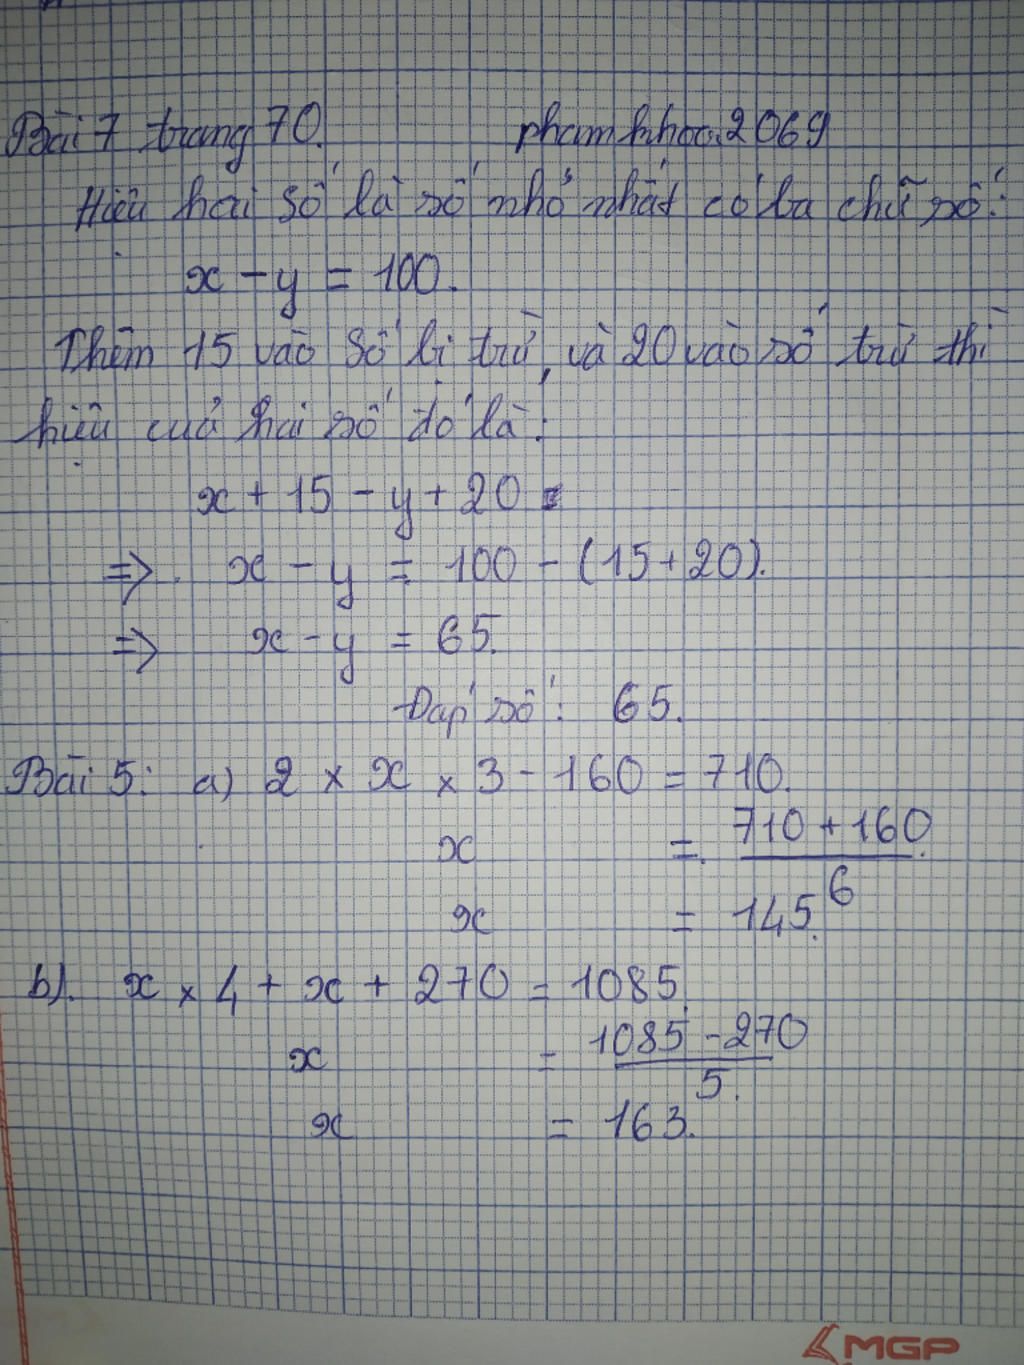 Bài 7 trang 70. phamkhoa.2069
Hiệu hai số là số nhỏ nhất có ba chữ số:
x - y = 100.
Thêm 15 vào số bị trừ, và 20 vào số trừ thì
hiệu của hai số đó là:
x + 15 - y + 20 =
=> x - y = 100 - (15 + 20).
=> x - y = 65.
Đáp số: 65.
Bài 5: a) 2 × x × 3 - 160 = 710.
x = \frac{710 + 160}{6}
x = 145.
b). x × 4 + x + 270 = 1085.
x = \frac{1085 - 270}{5}.
x = 163.
MGP